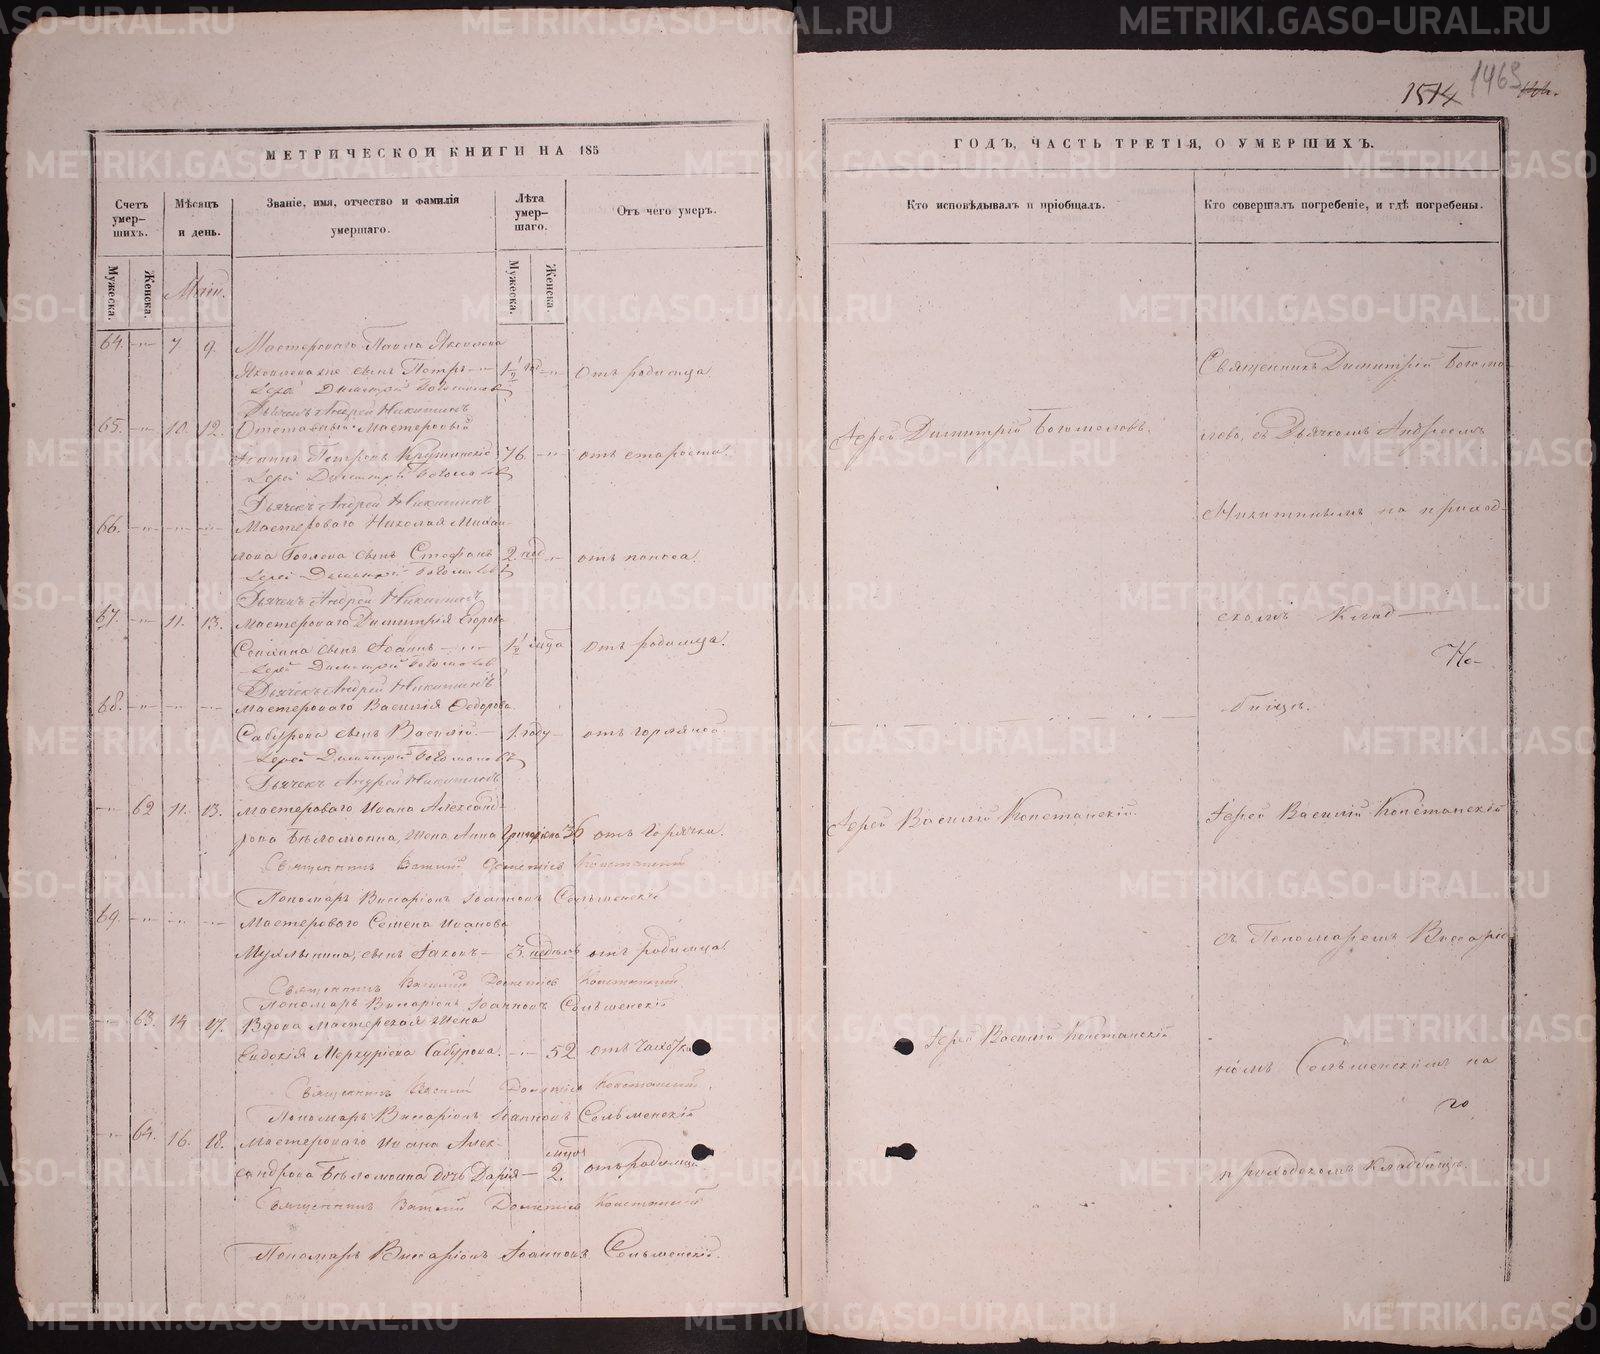 1514 1463
МЕТРИЧЕСКОЙ КНИГИ НА 185
ГОДЪ, ЧАСТЬ ТРЕТІЯ, О УМЕРШИХЪ.
Счетъ умер-
шихъ.
Мѣсяцъ
и день.
Званіе, имя, отчество и фамилія
умершаго.
Лѣта
умер-
шаго.
Отъ чего умеръ.
Кто исповѣдывалъ и пріобщалъ.
Кто совершалъ погребеніе, и гдѣ погребены.
Мужеска.
Женска.
Мужеска.
Женска.
Маій.
64. 7 9. Мастероваго Павла Яковлева
сынъ Петръ 1 1/2 год отъ родимца
Іерей Димитрій Богомоловъ
Дьячекъ Андрей Никитинъ
65. 10. 12. Отставный Мастеровый
Іоаннъ Петровъ 76. отъ старости.
Іерей Димитрій Богомоловъ
Дьячекъ Андрей Никитинъ
66. Мастероваго Николая Михаи-
лова сынъ Стефанъ 2. год отъ поноса.
Іерей Димитрій Богомоловъ
Дьячекъ Андрей Никитинъ
67. 11. 13. Мастероваго Димитрія Егорова
сынъ Іоаннъ 1 1/2 года отъ родимца.
Іерей Димитрій Богомоловъ
Дьячекъ Андрей Никитинъ
68. Мастероваго Василія Ѳедорова
Сабурова сынъ Василій 1. году отъ горляной
Іерей Димитрій Богомоловъ
Дьячекъ Андрей Никитинъ
62 11. 13. Мастероваго Ивана Александ-
рова Бѣломоина, жена Анна Григоріева 36 отъ горячки.
Священникъ Василій Констанскій
Пономарь Виссаріонъ Іоанновъ Сельменскій
69. Мастероваго Семена Иванова
сынъ Іаковъ 3. недѣль отъ родимца.
Священникъ Василій Констанскій
Пономарь Виссаріонъ Іоанновъ Сельменскій
63. 14 17. Вдова Мастерская жена
Евдокія Меркуріева Сабурова. 52 отъ чахотки
Священникъ Василій Констанскій
Пономарь Виссаріонъ Іоанновъ Сельменскій
64. 16. 18. Мастероваго Ивана Алек-
сандрова Бѣломоина дочь Дарія 2. отъ родимца
Священникъ Василій Констанскій
Пономарь Виссаріонъ Іоанновъ Сельменскій.
Іерей Димитрій Богомоловъ.
Іерей Василій Констанскій.
Іерей Василій Констанскій
Священникъ Димитрій Богомо-
ловъ, съ Дьячкомъ Андреемъ
Никитинымъ на приход-
скомъ клад-
бищѣ.
Іерей Василій Констанскій
съ Пономаремъ Виссаріо-
номъ Сельменскимъ на
приходскомъ кладбищѣ.
METRIKI.GASO-URAL.RU